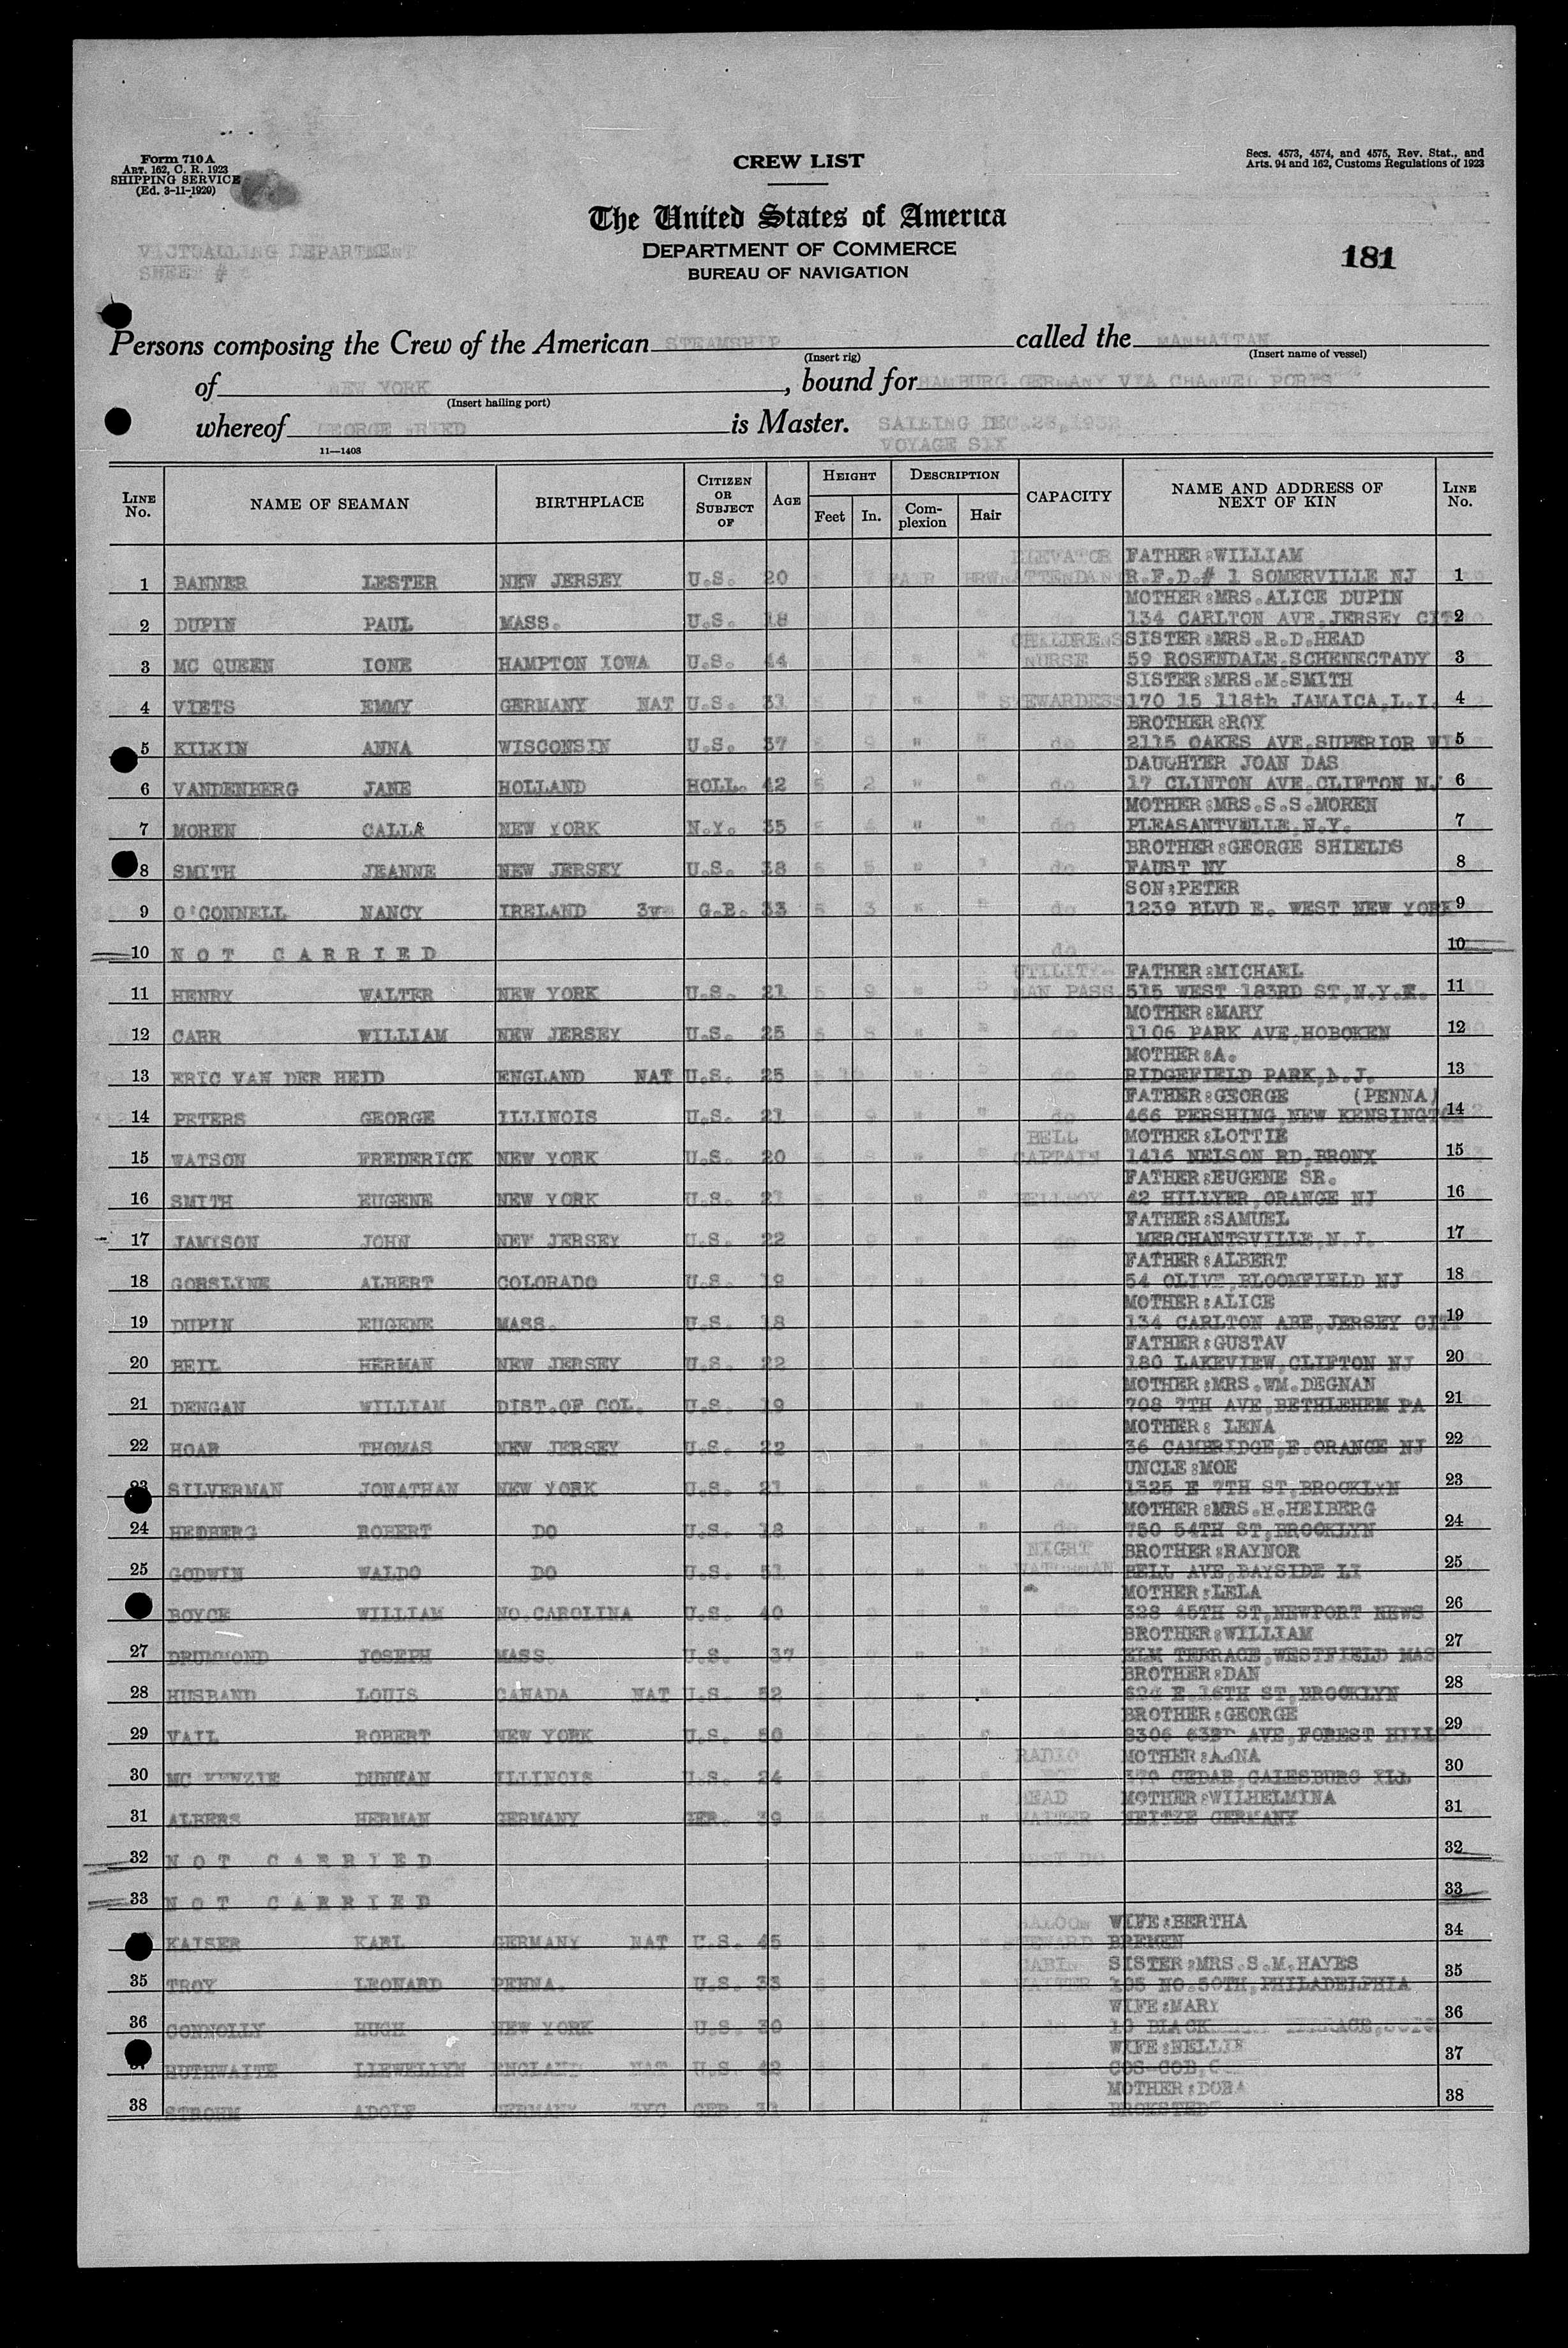 Form 710 A
ART. 162, C. R. 1923
SHIPPING SERVICE
(Ed. 3-11-1929)
CREW LIST
Secs. 4573, 4574, and 4575, Rev. Stat., and
Arts. 94 and 162, Customs Regulations of 1923
The United States of America
DEPARTMENT OF COMMERCE
BUREAU OF NAVIGATION
VICTUALLING DEPARTMENT
SHEET #
181
Persons composing the Crew of the American STEAMSHIP called the MANHATTAN
(Insert rig) (Insert name of vessel)
of NEW YORK, bound for HAMBURG, GERMANY VIA CHANNEL PORTS
(Insert hailing port)
whereof GEORGE FRIED is Master. SAILING DEC. 28, 1932
11—1408 VOYAGE SIX
LINE No. NAME OF SEAMAN BIRTHPLACE CITIZEN OR SUBJECT OF AGE HEIGHT Feet In. DESCRIPTION Complexion Hair CAPACITY NAME AND ADDRESS OF NEXT OF KIN LINE No.
ELEVATOR FATHER:WILLIAM
1 BANNER LESTER NEW JERSEY U.S. 20 5 7 FAIR BRWN ATTENDANT R.F.D.# 1 SOMERVILLE NJ 1
MOTHER:MRS.ALICE DUPIN
2 DUPIN PAUL MASS. U.S. 18 134 CARLTON AVE,JERSEY CITY 2
CHILDRENS SISTER:MRS.R.D.HEAD
3 MC QUEEN IONE HAMPTON IOWA U.S. 44 " " NURSE 59 ROSENDALE,SCHENECTADY 3
SISTER:MRS.M.SMITH
4 VIETS EMMY GERMANY NAT U.S. 31 5 7 " " STEWARDESS 170 15 118th JAMAICA,L.I. 4
BROTHER:ROY
5 KILKIN ANNA WISCONSIN U.S. 37 5 9 " " do 2115 OAKES AVE,SUPERIOR WIS 5
DAUGHTER JOAN DAS
6 VANDENBERG JANE HOLLAND HOLL. 42 5 2 " " do 17 CLINTON AVE,CLIFTON NJ 6
MOTHER:MRS.S.S.MOREN
7 MOREN CALLA NEW YORK N.Y. 35 5 4 " " do PLEASANTVELLE,N.Y. 7
BROTHER:GEORGE SHIELDS
8 SMITH JEANNE NEW JERSEY U.S. 38 5 5 " " do FAUST NY 8
SON:PETER
9 O'CONNELL NANCY IRELAND G.B. 33 5 3 " " do 1239 BLVD E. WEST NEW YORK 9
10 NOT CARRIED do 10
UTILITY- FATHER:MICHAEL
11 HENRY WALTER NEW YORK U.S. 21 5 9 " " MAN PASS. 515 WEST 183RD ST,N.Y. 11
MOTHER:MARY
12 CARR WILLIAM NEW JERSEY U.S. 25 5 8 " " do 1106 PARK AVE,HOBOKEN 12
MOTHER:A.
13 ERIC VAN DER HEID ENGLAND NAT U.S. 25 5 10 " " do RIDGEFIELD PARK,N.J. 13
FATHER:GEORGE (PENNA)
14 PETERS GEORGE ILLINOIS U.S. 21 5 9 " " do 466 PERSHING,NEW KENSINGTON 14
BELL MOTHER:LOTTIE
15 WATSON FREDERICK NEW YORK U.S. 20 5 8 " " CAPTAIN 1416 NELSON RD,BRONX 15
FATHER:EUGENE SR.
16 SMITH EUGENE NEW YORK U.S. 21 " " BELLBOY 42 HILLYER,ORANGE NJ 16
FATHER:SAMUEL
17 JAMISON JOHN NEW JERSEY U.S. 22 do MERCHANTSVILLE,N.J. 17
FATHER:ALBERT
18 GORSLINE ALBERT COLORADO U.S. 19 do 54 OLIVE,BLOOMFIELD NJ 18
MOTHER:ALICE
19 DUPIN EUGENE MASS. U.S. 18 do 134 CARLTON ABE,JERSEY CITY 19
FATHER:GUSTAV
20 BEIL HERMAN NEW JERSEY U.S. 22 do 180 LAKEVIEW,CLIFTON NJ 20
MOTHER:MRS.WM.DEGNAN
21 DENGAN WILLIAM DIST.OF COL. U.S. 19 do 708 7TH AVE,BETHLEHEM PA 21
MOTHER: LENA
22 HOAR THOMAS NEW JERSEY U.S. 22 " " do 36 CAMBRIDGE,E.ORANGE NJ 22
UNCLE:MOE
23 SILVERMAN JONATHAN NEW YORK U.S. 21 " " do 1325 E 7TH ST,BROOKLYN 23
MOTHER:MRS.H.HEIBERG
24 HEDBERG ROBERT DO U.S. 18 " " do 750 54TH ST,BROOKLYN 24
NIGHT BROTHER:RAYNOR
25 GODWIN WALDO DO U.S. 51 " " WATCHMAN BELL AVE,BAYSIDE LI 25
MOTHER:LELA
BOYCE WILLIAM NO.CAROLINA U.S. 40 " " do 328 45TH ST,NEWPORT NEWS 26
BROTHER:WILLIAM
27 DRUMMOND JOSEPH MASS. U.S. 37 " " do ELM TERRACE,WESTFIELD MAS 27
BROTHER:DAN
28 HUSBAND LOUIS CANADA NAT U.S. 52 " " do 624 E.16TH ST,BROOKLYN 28
BROTHER:GEORGE
29 VAIL ROBERT NEW YORK U.S. 50 " " do 6306 63RD AVE,FOREST HILLS 29
RADIO MOTHER:ANNA
30 MC KENZIE DUNCAN ILLINOIS U.S. 24 " " BOY 379 CEDAR,GALESBURG ILL 30
HEAD MOTHER:WILHELMINA
31 ALBERS HERMAN GERMANY GER. 39 " " WAITER NEITZE GERMANY 31
32 NOT CARRIED 32
33 NOT CARRIED 33
SALOON WIFE:BERTHA
KAISER KARL GERMANY NAT U.S. 45 " " STEWARD BREMEN 34
CABIN SISTER:MRS.S.M.HAYES
35 TROY LEONARD PENNA. U.S. 33 " " WAITER 105 NO.50TH,PHILADELPHIA 35
WIFE:MARY
36 CONNOLLY HUGH NEW YORK U.S. 30 36
WIFE:NELLIE
HUTHWAITE LLEWELLYN ENGLAND NAT U.S. 42 COS-COB, 37
MOTHER:DORA
38 STROHM ADOLF GERMANY GER. 31 BROKSTEDT 38